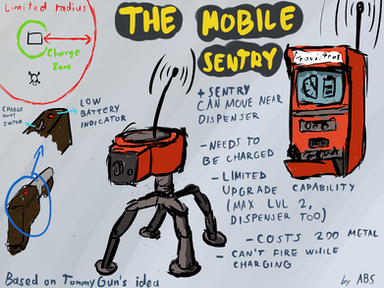 Limited radius
Charge
Zone
THE MOBILE
SENTRY
Provisions
CHARGE
POINT
SWITCH
LOW
BATTERY
INDICATOR
+ SENTRY
CAN MOVE NEAR
DISPENSER
- NEEDS TO
BE CHARGED
- LIMITED
UPGRADE CAPABILITY
(MAX LVL 2,
DISPENSER TOO)
- COSTS 200 METAL
- CAN'T FIRE WHILE
CHARGING
Based on TommyGun's idea
by ABS